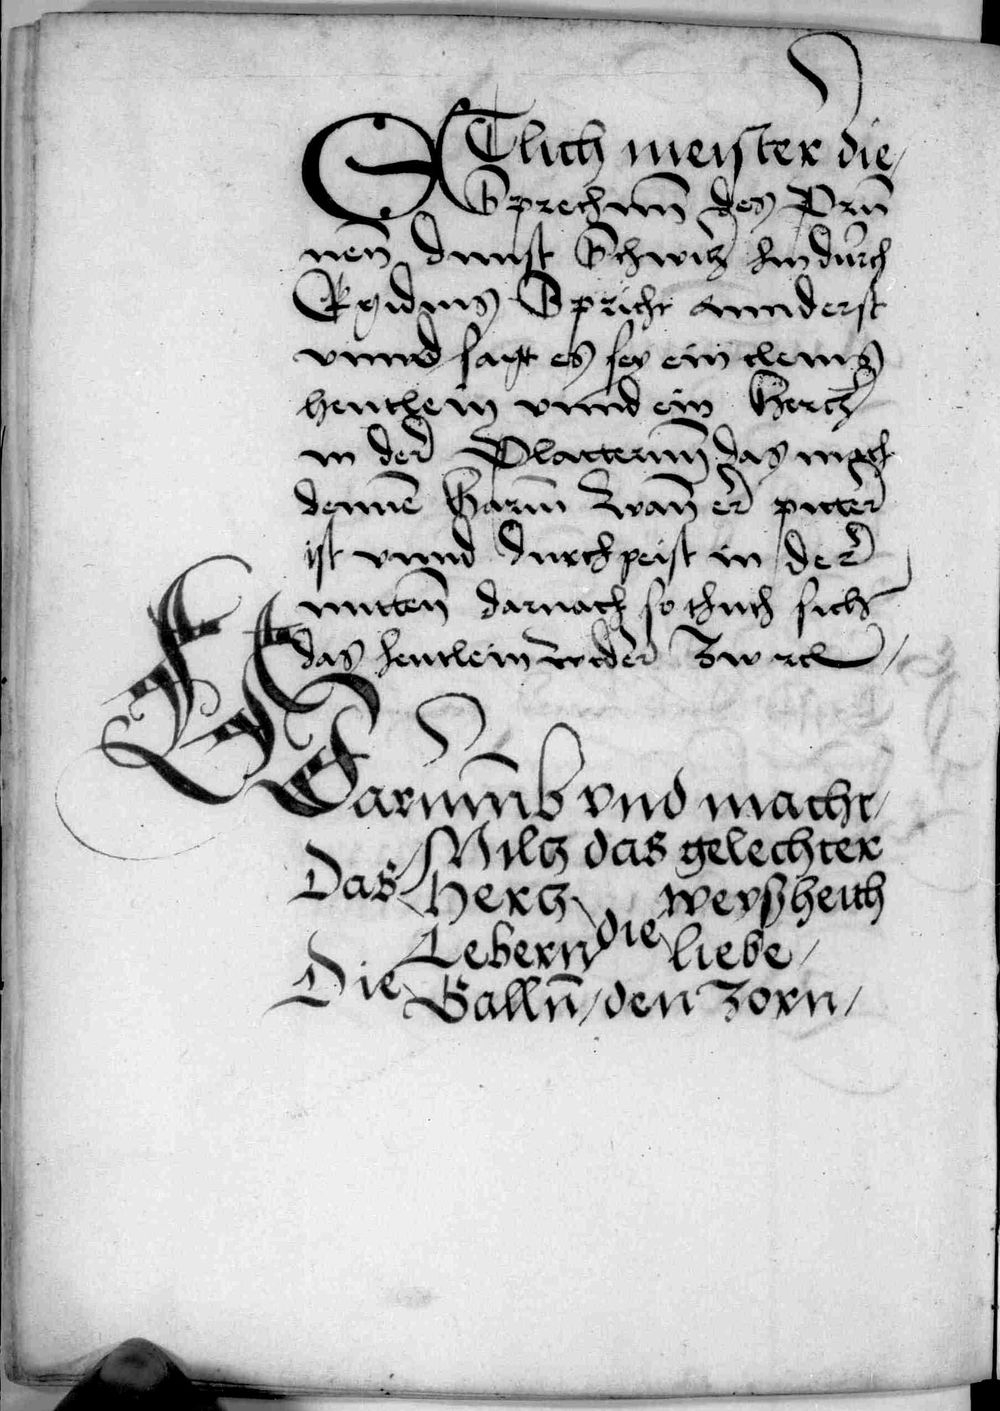 ETlich meister die
Sprechnn̄ des Prun̄
nen̄ dunst Schwitz hindurch
Egidius Spricht annderst
vnnd sagt es sey ein cleins
heutlein vnnd ein Herttz
in der Platternn̄ das mach
dennē Harnn̄ wan̄ er pitter
ist vnnd durchpeist in der
mitten̄ darnach so thuth sich
das heutlein wider Zw
Darumb vnd macht
Das Miltz das gelechter
Hertz die weyßheith
Die Lebern liebe
Galln̄ den Zorn